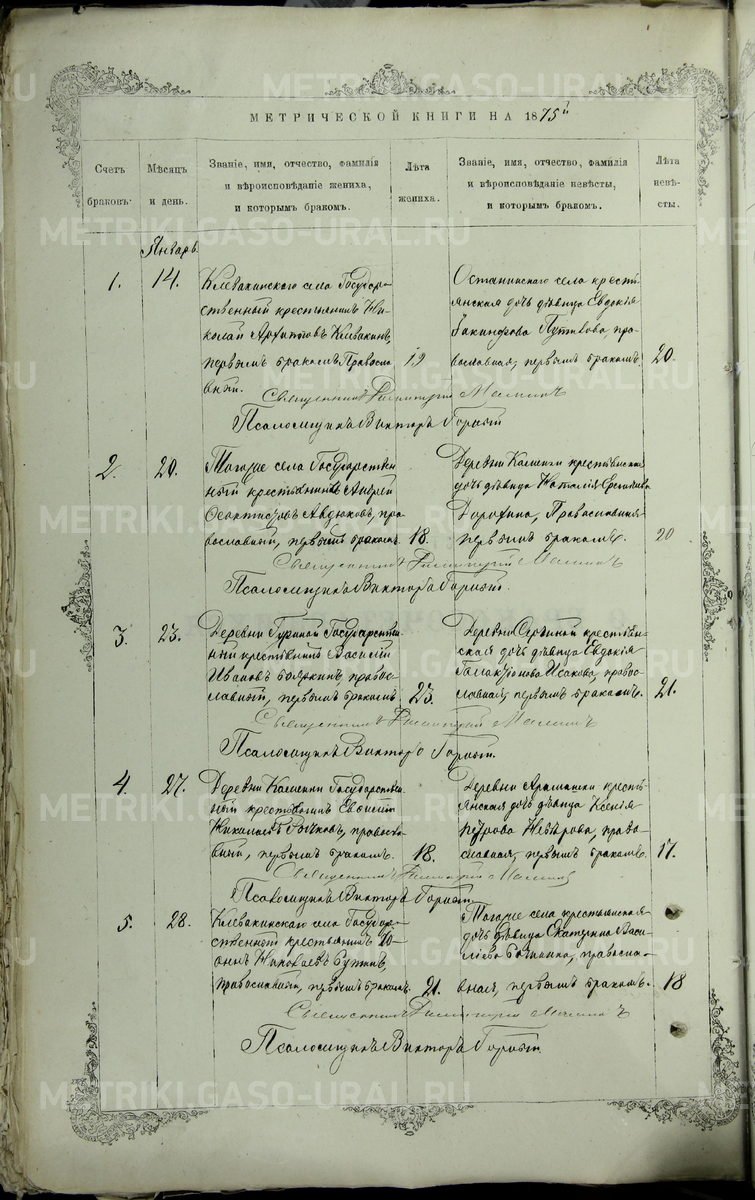 МЕТРИЧЕСКОЙ КНИГИ НА 1875й
Счетъ браковъ.
Мѣсяцъ и день.
Званіе, имя, отчество, фамилія и вѣроисповѣданіе жениха, и которымъ бракомъ.
Лѣта жениха.
Званіе, имя, отчество, фамилія и вѣроисповѣданіе невѣсты, и которымъ бракомъ.
Лѣта невѣсты.
Январь
1.
14.
Клевакинскаго села Государ-
ственный крестьянинъ Ни-
колай Архиповъ Клевакинъ,
первымъ бракомъ Правосла-
вный.
19
Останинскаго села кресть-
янская дочь дѣвица Евдокія
Путилова, пра-
вославная, первымъ бракомъ.
20.
Священникъ Малинъ
Псаломщикъ Викторъ
2.
20.
Тогоже села Государствен-
ный крестьянинъ Андрей
Авдюковъ, пра-
вославный, первымъ бракомъ.
18.
Деревни Каменки крестьянская
дочь дѣвица Наталія
Дорохина, Православная
первымъ бракомъ.
20
Священникъ Малинъ
Псаломщикъ Викторъ
3.
23.
Деревни Гуриной Государствен-
ный крестьянинъ Василій
Ивановъ Бояркинъ, правос-
лавный, первымъ бракомъ.
23.
Деревни крестьян-
ская дочь дѣвица Евдокія
Галактіонова Исакова, правос-
лавная, первымъ бракомъ.
21.
Священникъ Малинъ
Псаломщикъ Викторъ
4.
27.
Деревни Каменки Государствен-
ный крестьянинъ Евсигній
Николаевъ Рычковъ, правосла-
вный, первымъ бракомъ.
18.
Деревни Арамашки кресть-
янская дочь дѣвица Ксенія
Петрова, право-
славная, первымъ бракомъ.
17.
Священникъ Малинъ
Псаломщикъ Викторъ
5.
28.
Клевакинскаго села Государ-
ственный крестьянинъ Іо-
аннъ Николаевъ
православный, первымъ бракомъ.
21.
Тогоже села крестьянская
дочь дѣвица Екатерина Васи-
ліева, правосла-
вная, первымъ бракомъ.
18
Священникъ Малинъ
Псаломщикъ Викторъ
METRIKI.GASO-URAL.RU